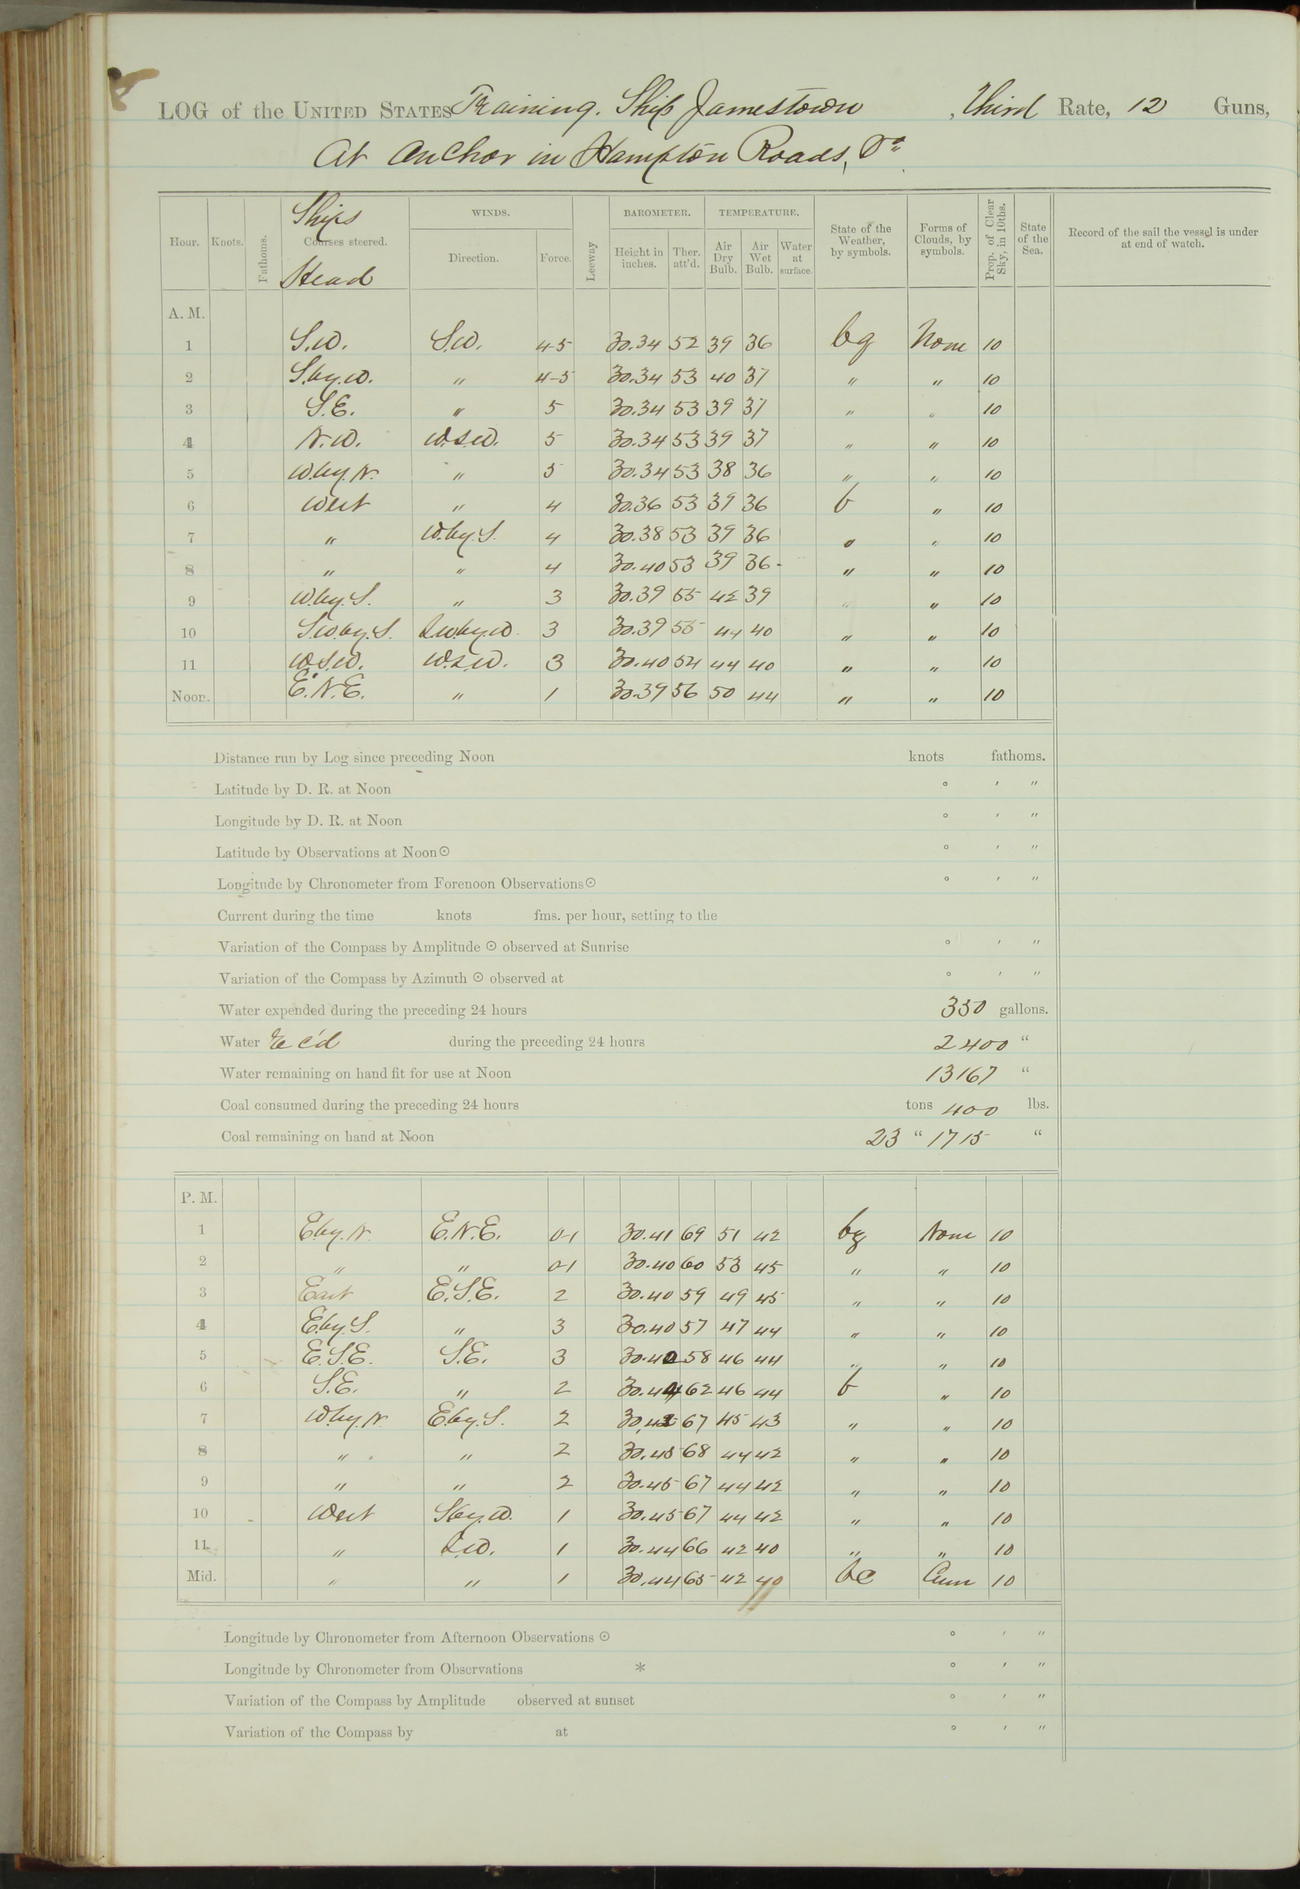 LOG of the UNITED STATES Training Ship Jamestown, Third Rate, 12 Guns,
At anchor in Hampton Roads, Va
Hour. Knots. Fathoms. Ships Courses steered. Head WINDS. Direction. Force. Leeway BAROMETER. Height in inches. Ther. att'd. TEMPERATURE. Air Dry Bulb. Air Wet Bulb. Water at surface. State of the Weather, by symbols. Forms of Clouds, by symbols. Prop. of Clear Sky, in 10ths. State of the Sea. Record of the sail the vessel is under at end of watch.
A. M.
1 S.W. S.W. 4-5 30.34 52 39 36 bg None 10
2 S.by.W. " 4-5 30.34 53 40 37 " " 10
3 S.E. " 5 30.34 53 39 37 " " 10
4 N.W. W.S.W. 5 30.34 53 39 37 " " 10
5 W.by.N. " 5 30.34 53 38 36 " " 10
6 West " 4 30.36 53 39 36 b " 10
7 " W.by.S. 4 30.38 53 39 36 " " 10
8 " " 4 30.40 53 39 36 " " 10
9 W.by.S. " 3 30.39 55 42 39 " " 10
10 S.W.by.S. S.W.by.W. 3 30.39 55 44 40 " " 10
11 W.S.W. W.S.W. 3 30.40 54 44 40 " " 10
Noon. E.N.E. " 1 30.39 56 50 44 " " 10
Distance run by Log since preceding Noon knots fathoms.
Latitude by D. R. at Noon ° ' "
Longitude by D. R. at Noon ° ' "
Latitude by Observations at Noon ☉ ° ' "
Longitude by Chronometer from Forenoon Observations ☉ ° ' "
Current during the time knots fms. per hour, setting to the
Variation of the Compass by Amplitude ☉ observed at Sunrise ° ' "
Variation of the Compass by Azimuth ☉ observed at ° ' "
Water expended during the preceding 24 hours 350 gallons.
Water Rec'd during the preceding 24 hours 2400 "
Water remaining on hand fit for use at Noon 13167 "
Coal consumed during the preceding 24 hours tons 400 lbs.
Coal remaining on hand at Noon 23 " 1715 "
P. M.
1 E.by.N. E.N.E. 0-1 30.41 69 51 42 bg None 10
2 " " 0-1 30.40 60 53 45 " " 10
3 East E.S.E. 2 30.40 59 49 45 " " 10
4 E.by.S. " 3 30.40 57 47 44 " " 10
5 E.S.E. S.E. 3 30.40 58 46 44 " " 10
6 S.E. " 2 30.44 62 46 44 b " 10
7 W.by.N. E.by.S. 2 67 45 43 " " 10
8 " " 2 30.45 68 44 42 " " 10
9 " " 2 30.45 67 44 42 " " 10
10 West S.by.W. 1 30.45 67 44 42 " " 10
11 " S.W. 1 30.44 66 42 40 " " 10
Mid. " " 1 30.44 65 42 40 bc Cum 10
Longitude by Chronometer from Afternoon Observations ☉ ° ' "
Longitude by Chronometer from Observations * ° ' "
Variation of the Compass by Amplitude observed at sunset ° ' "
Variation of the Compass by at ° ' "